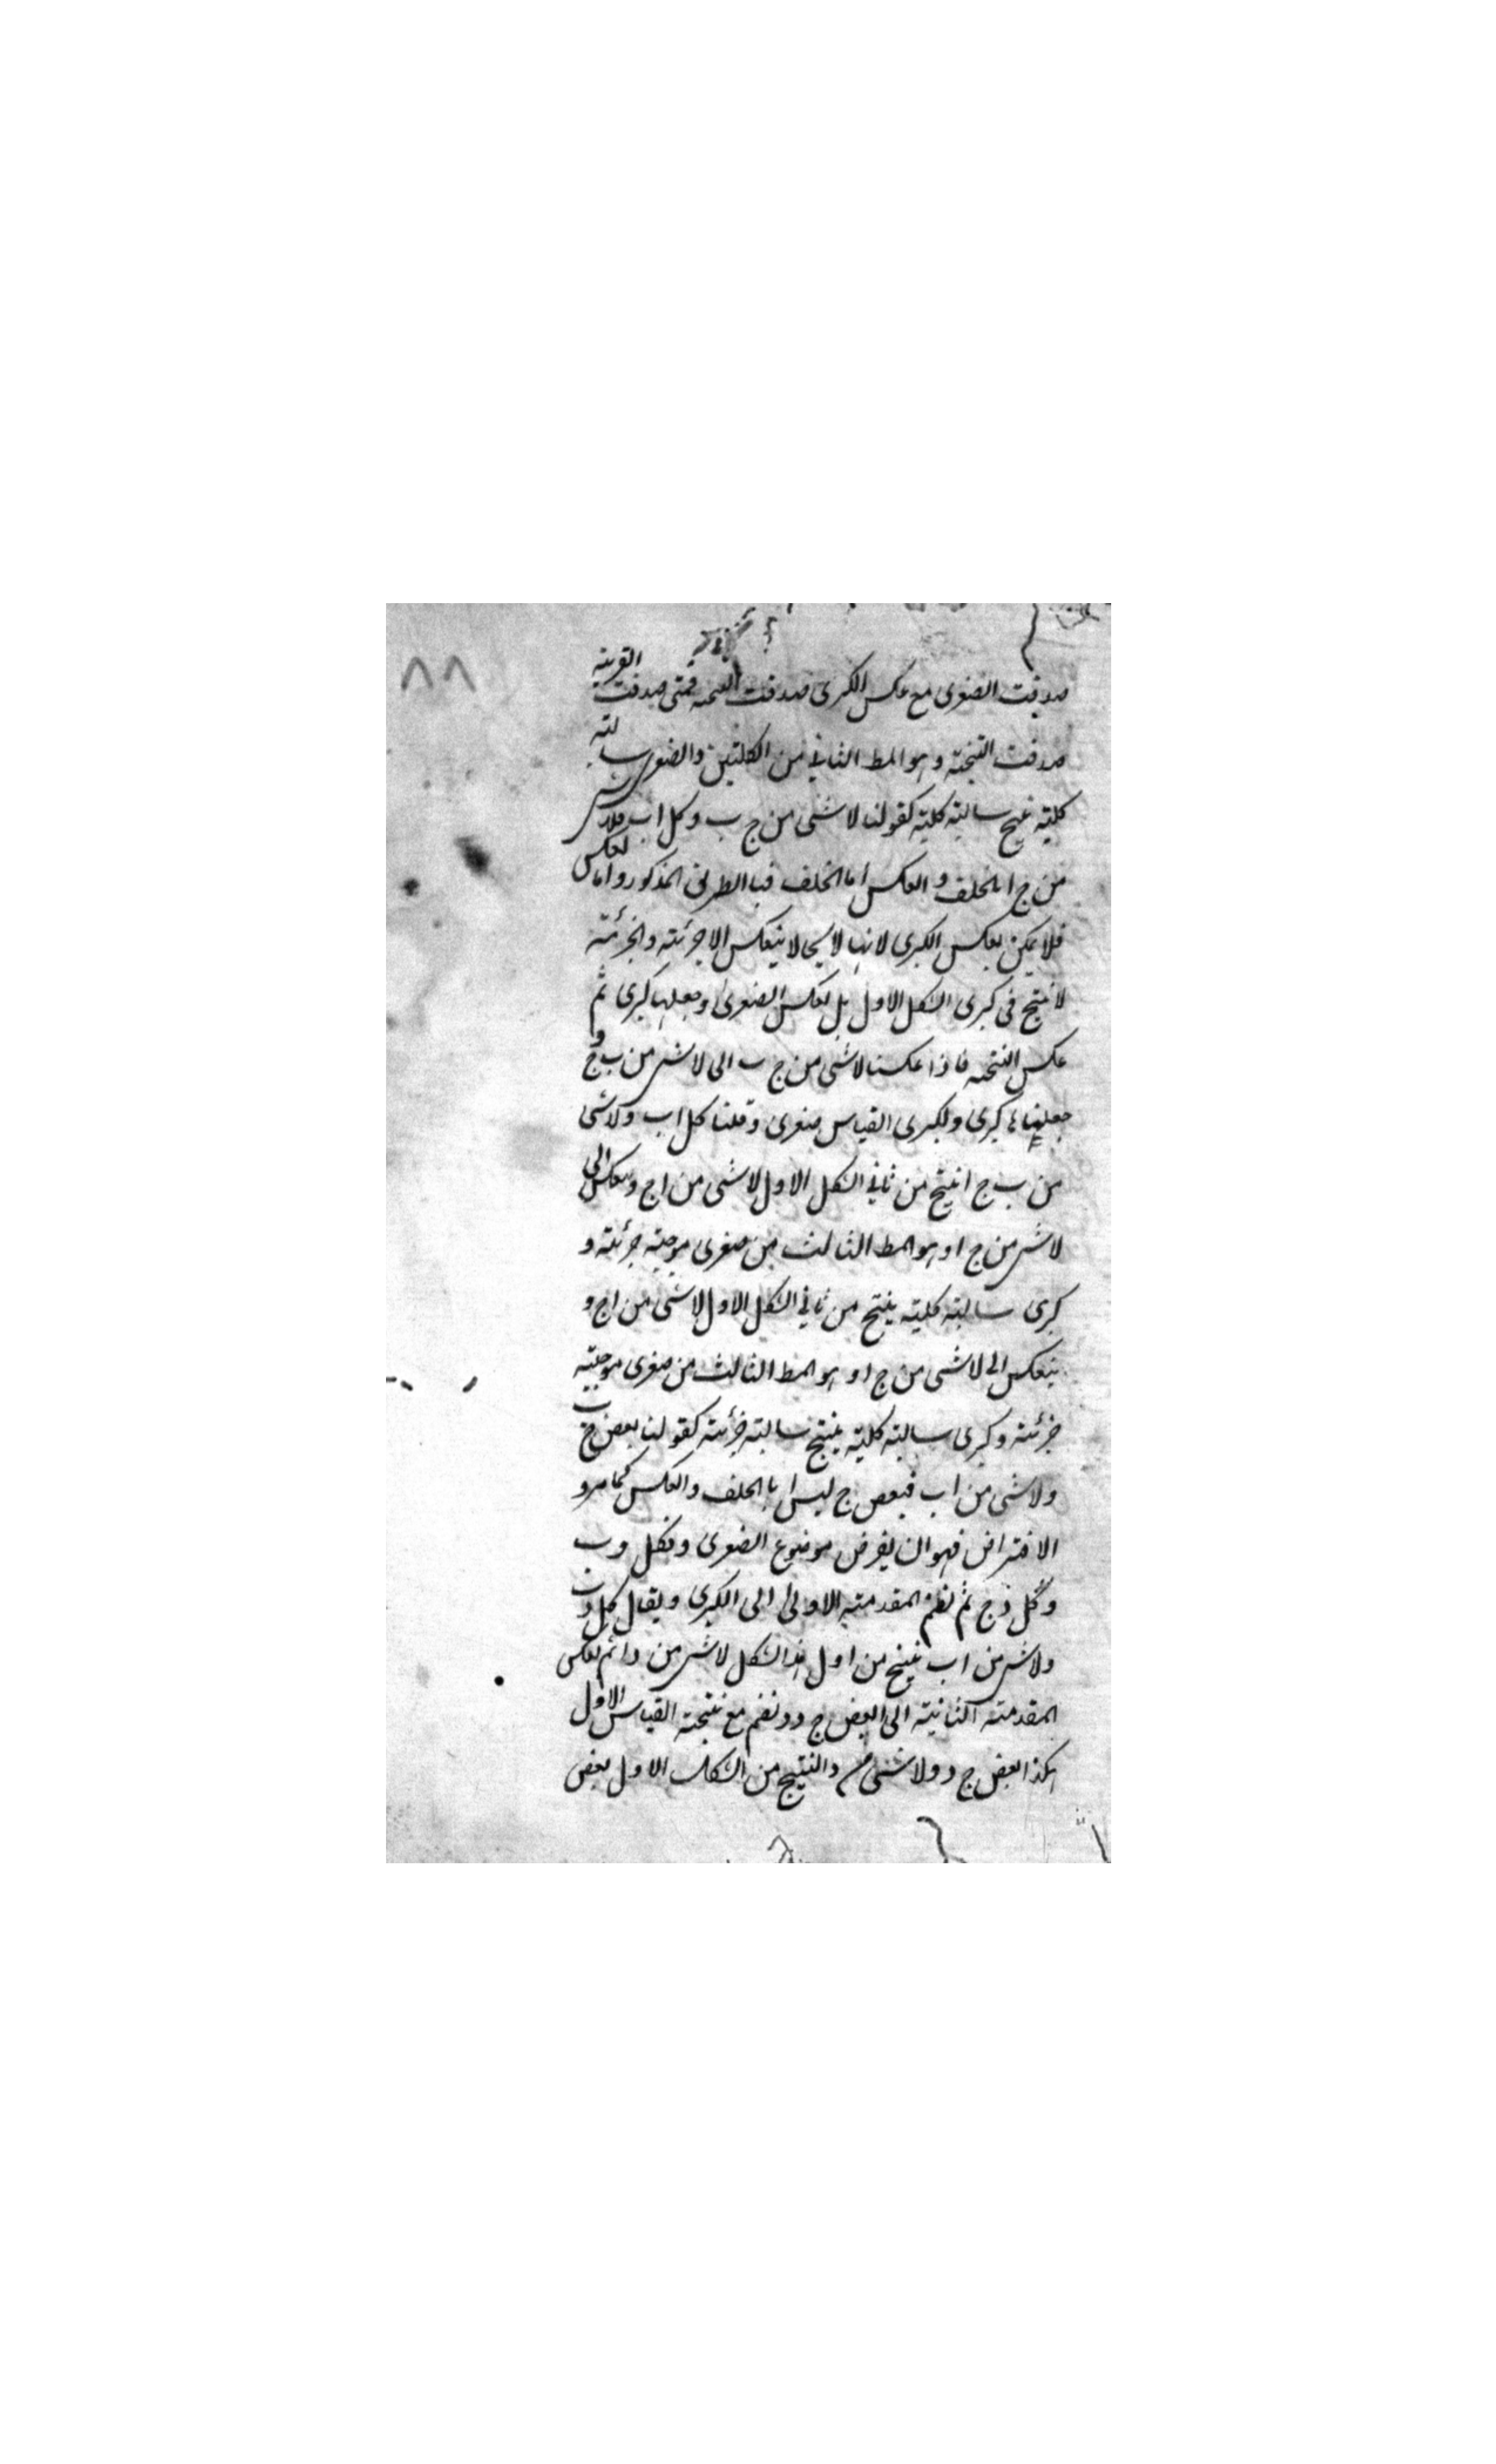 ٨٨
صدقت الصغرى مع عكس الكبرى صدقت النتيجه فمتى صدقت القرينة
صدقت النتيجة وهو المط الثانى من الكليتين والصغرى سالبة
كلية ينتج سالبة كلية كقولنا لا شئ من ج ب وكل اب فلا شئ
من ج ا بالخلف والعكس اما الخلف فبا الطريق المذكور واما العكس
فلا يمكن بعكس الكبرى لانها لايجا لا ينعكس الا جزئية والجزئية
لا ينتج فى كبرى الشكل الاول بل بعكس الصغرى وجعلها كبرى ثم
عكس النتيجه فاذا عكسنا لا شئ من ج ب الى لا شئ من ب ج و
جعلناها كبرى ولكبرى القياس صغرى وقلنا كل اب ولا شئ
من ب ج انتج من ثانى الشكل الاول لا شئ من اج وينعكس الى
لا شئ من ج ا وهو المط الثالث من صغرى موجبة جزئية و
كبرى سالبة كلية ينتج من ثانى الشكل الاول لا شئ من اج و
ينعكس الى لا شئ من ج ا وهو المط الثالث من صغرى موجبة
جزئية وكبرى سالبة كلية ينتج سالبة جزئية كقولنا بعض ج ب
ولا شئ من اب فبعض ج ليس ا با الخلف والعكس كما مر و
الافتراض فهو ان يفرض موضوع الصغرى د فكل د ب
وكل د ج ثم نظم المقدمة الاولى الى الكبرى ويقال كل د ب
ولا شئ من اب ينتج من اول هذا الشكل لا شئ من د ا ثم بعكس
المقدمة الثانية الى البعض ج د و نضم مع نتيجة القياس الاول
هكذا بعض ج د ولا شئ من د ا لنتيج من الشكل الاول بعض